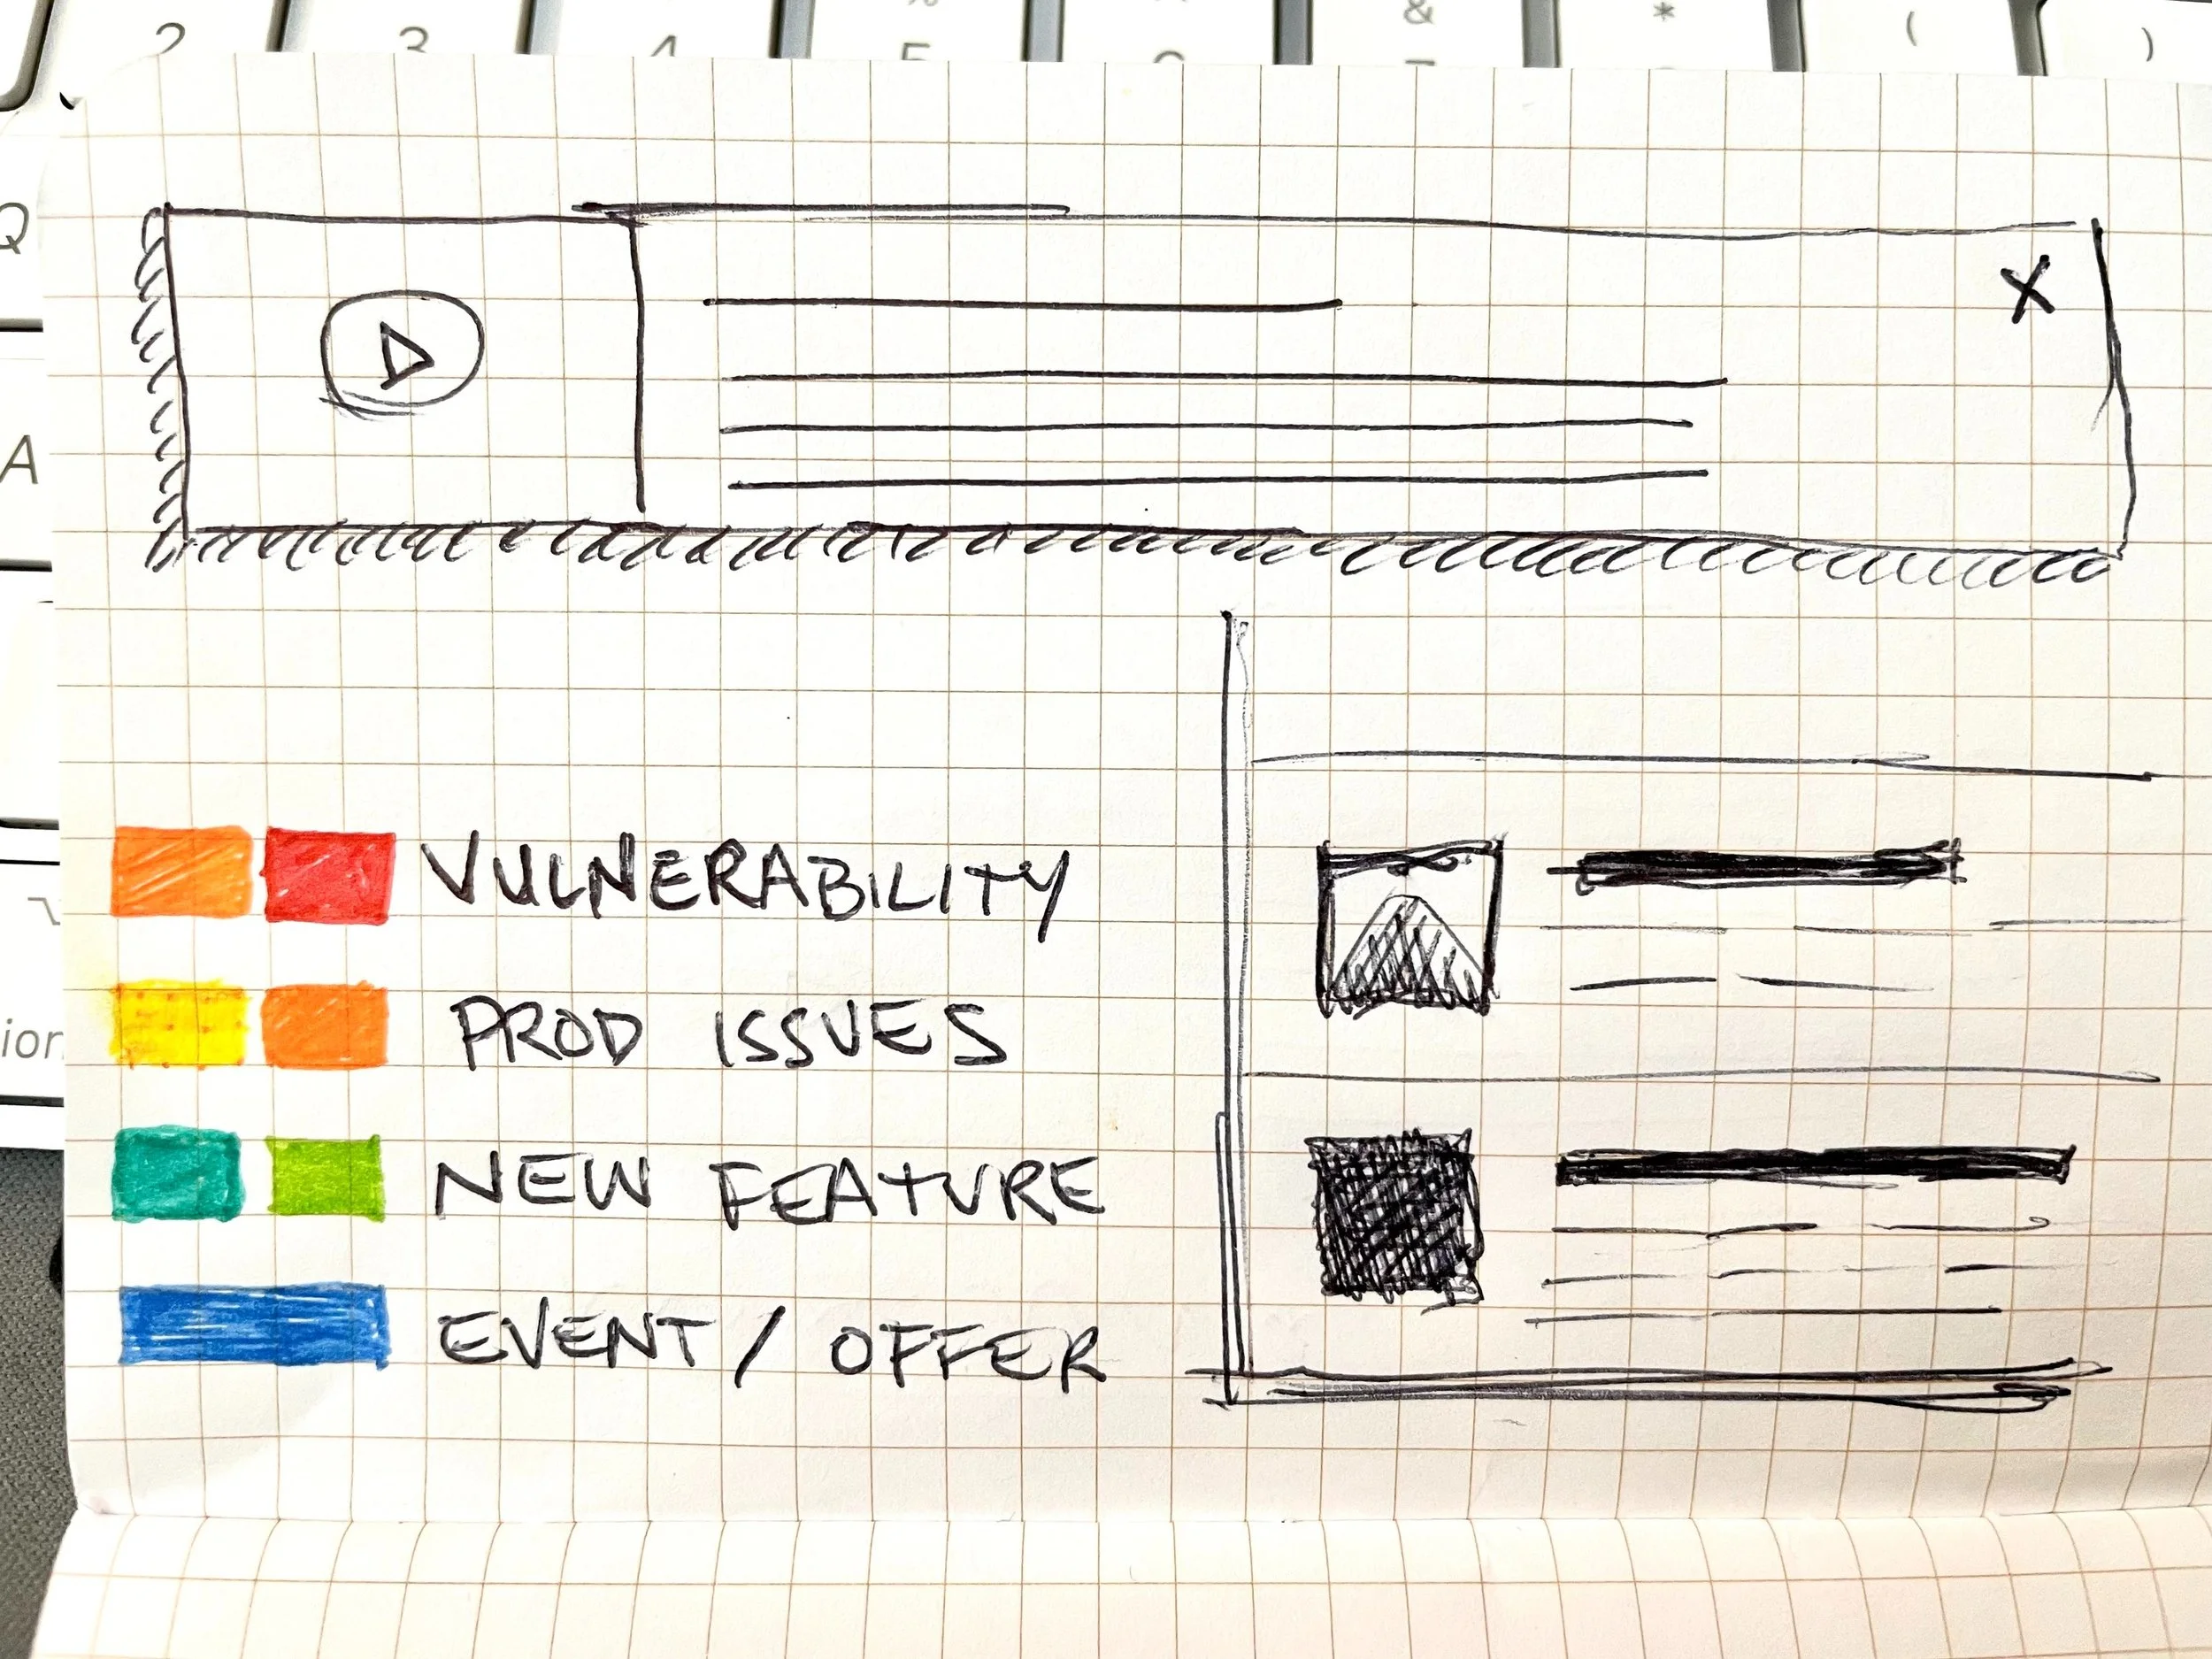 2 3 4 5 & * ( )
Q
X
A
VULNERABILITY
PROD ISSUES
ion
NEW FEATURE
EVENT / OFFER